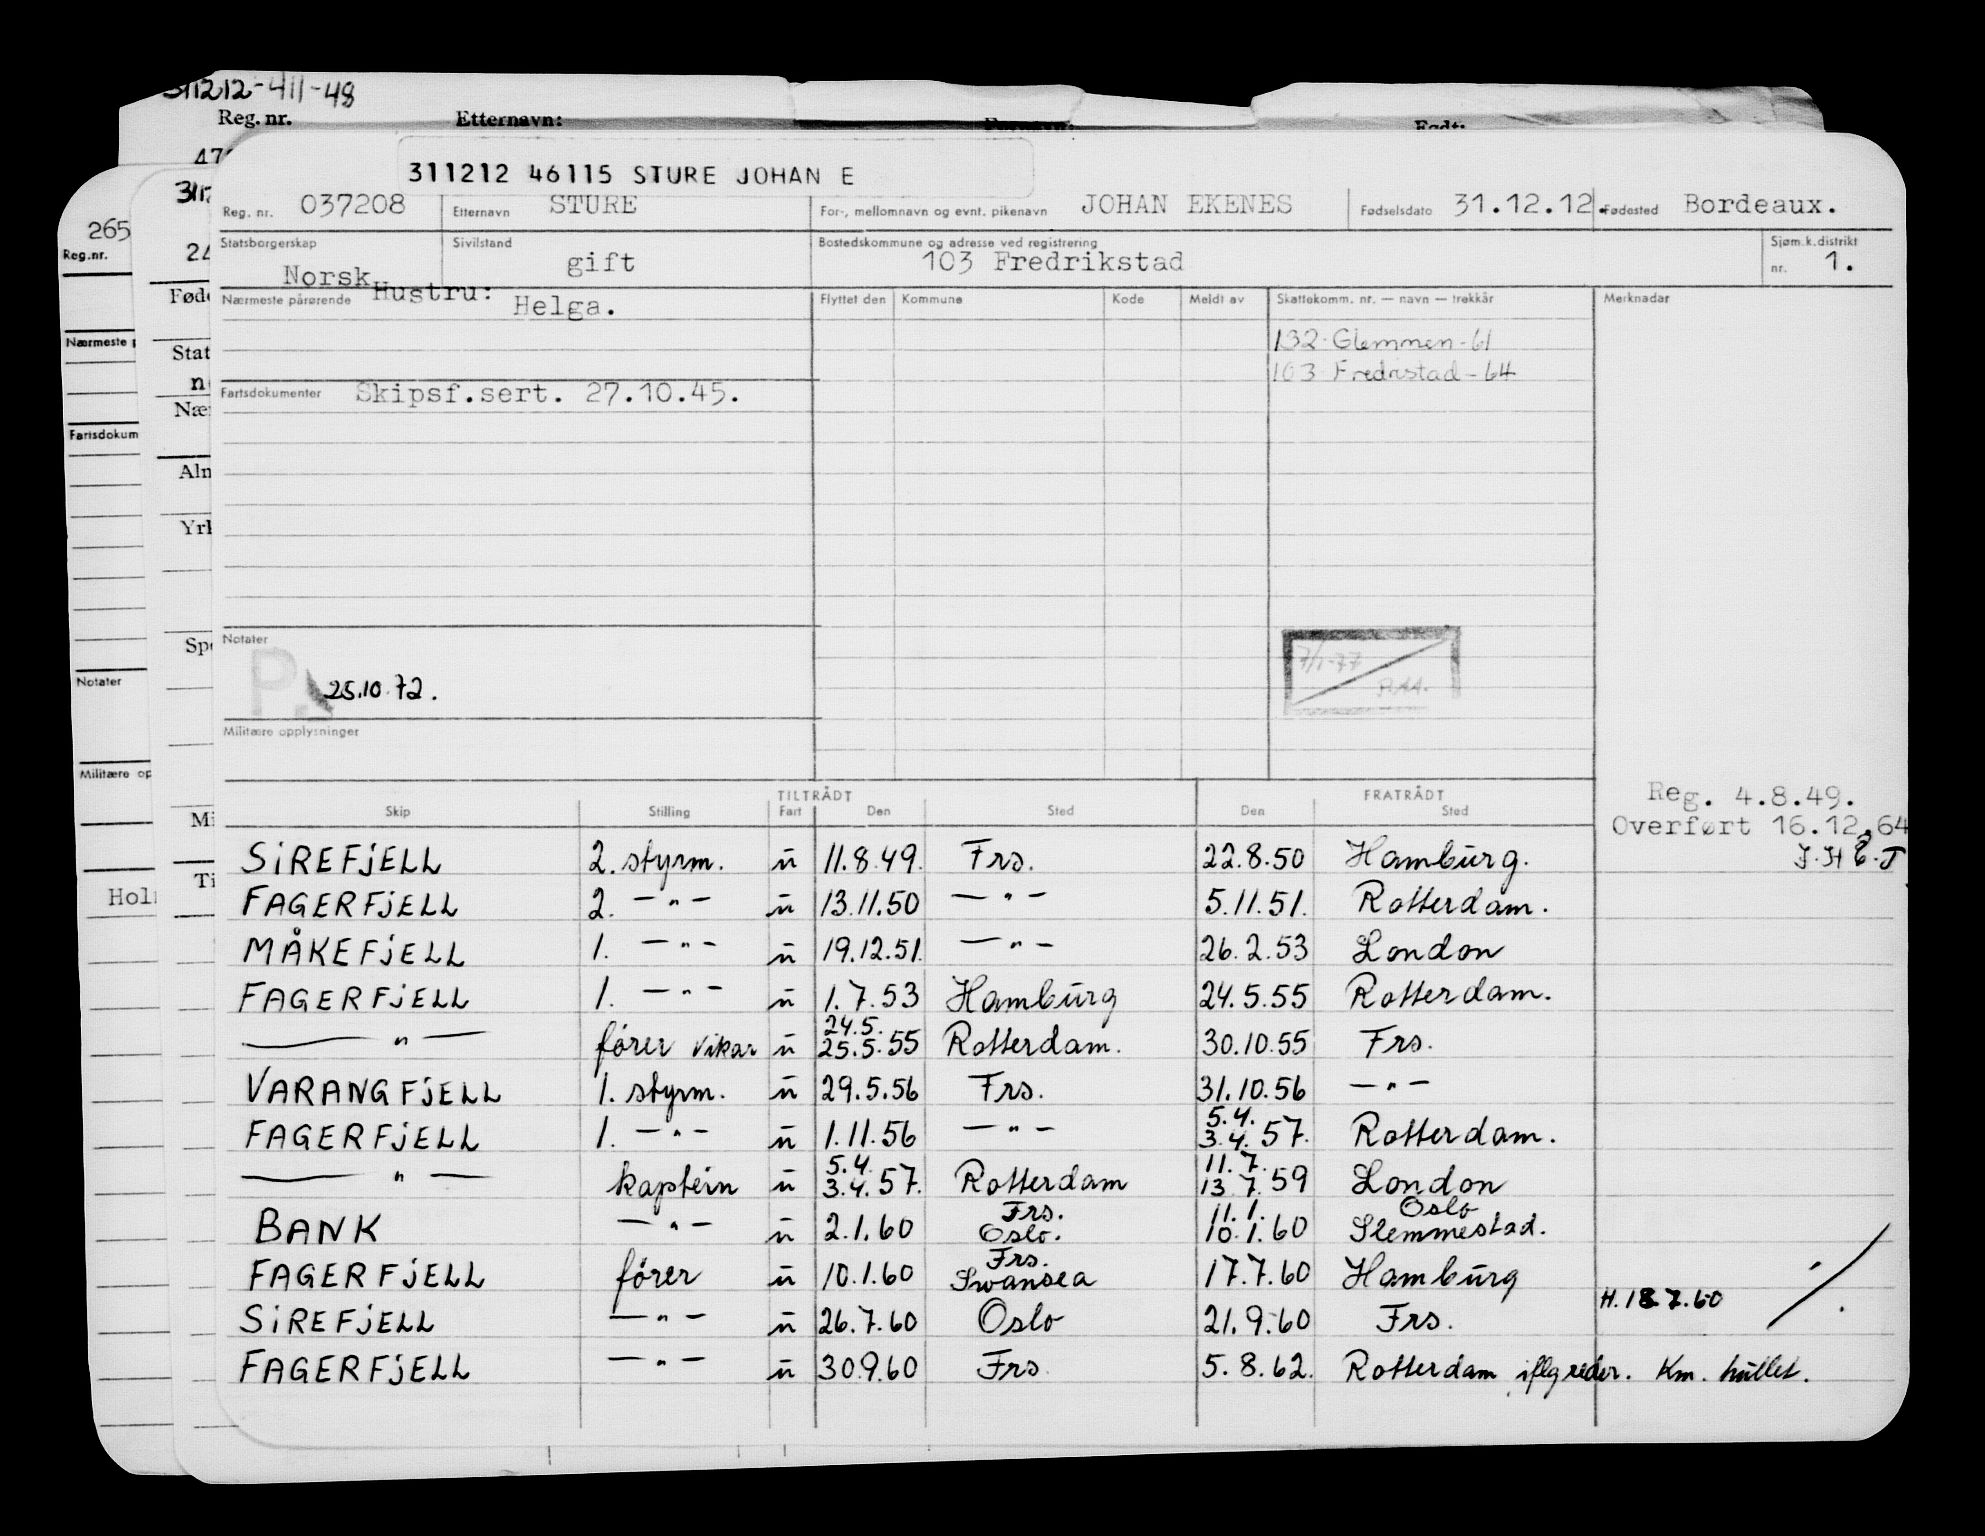 311212-411-48
Reg. nr. Etternavn: Født:
311212 46115 STURE JOHAN E
Reg. nr. 037208 Etternavn STURE For-, mellomnavn og evnt. pikenavn JOHAN EKENES Fødselsdato 31.12.12. Fødested Bordeaux.
Statsborgerskap Norsk Sivilstand gift Bostedskommune og adresse ved registrering 103 Fredrikstad Sjøm.k.distrikt nr. 1.
Nærmeste pårørende Hustru: Helga. Flyttet den Kommune Kode Meldt av Skattekomm. nr. — navn — trekkår Merknader
132 Glemmen-61
103 Fredristad-64
Fartsdokumenter Skipsf.sert. 27.10.45.
Notater
P. 25.10.72.
7/1-77
Militære opplysninger
Reg. 4.8.49.
Overført 16.12.64
TILTRÅDT FRATRÅDT
Skip Stilling Fart Den Sted Den Sted
SIREFJELL 2. styrm. u 11.8.49. Frs. 22.8.50 Hamburg.
FAGERFJELL 2. —"— u 13.11.50 —"— 5.11.51. Rotterdam.
MÅKEFJELL 1. —"— u 19.12.51. —"— 26.2.53 London
FAGERFJELL 1. —"— u 1.7.53 Hamburg 24.5.55 Rotterdam.
—"— fører vikar u 24.5. 25.5.55 Rotterdam. 30.10.55 Frs.
VARANGFJELL 1. styrm. u 29.5.56 Frs. 31.10.56 —"—
FAGERFJELL 1. —"— u 1.11.56 —"— 5.4. 3.4.57. Rotterdam.
—"— kaptein u 5.4. 3.4.57. Rotterdam 11.7. 13.7.59 London
BANK —"— u 2.1.60 Frs. Oslo. 11.1. 10.1.60 Oslo Slemmestad.
FAGERFJELL fører u 10.1.60 Frs. Swansea 17.7.60 Hamburg
H. 18.7.60
SIREFJELL —"— u 26.7.60 Oslo 21.9.60 Frs.
FAGERFJELL —"— u 30.9.60 Frs. 5.8.62. Rotterdam iflg reder. Km. hullet.
265
Reg.nr.
Nærmeste
Fartsdokum
Notater
Militære op